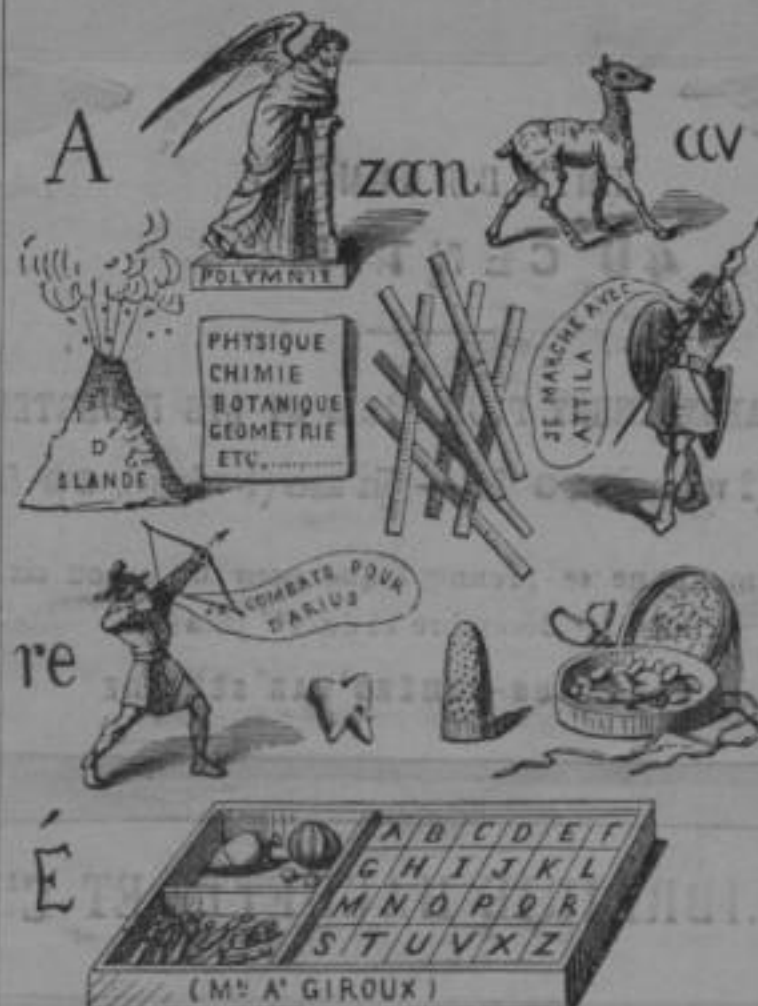 A
zan
av
POLYMNIE
D'
SLANDE
PHYSIQUE
CHIMIE
BOTANIQUE
GEOMÉTRIE
ETC..........
JE MARCHE AVEC
ATTILA
re
COMBATS POUR
DARIUS
É
A B C D E F
G H I J K L
M N O P Q R
S T U V X Z
(Mon Ae GIROUX)